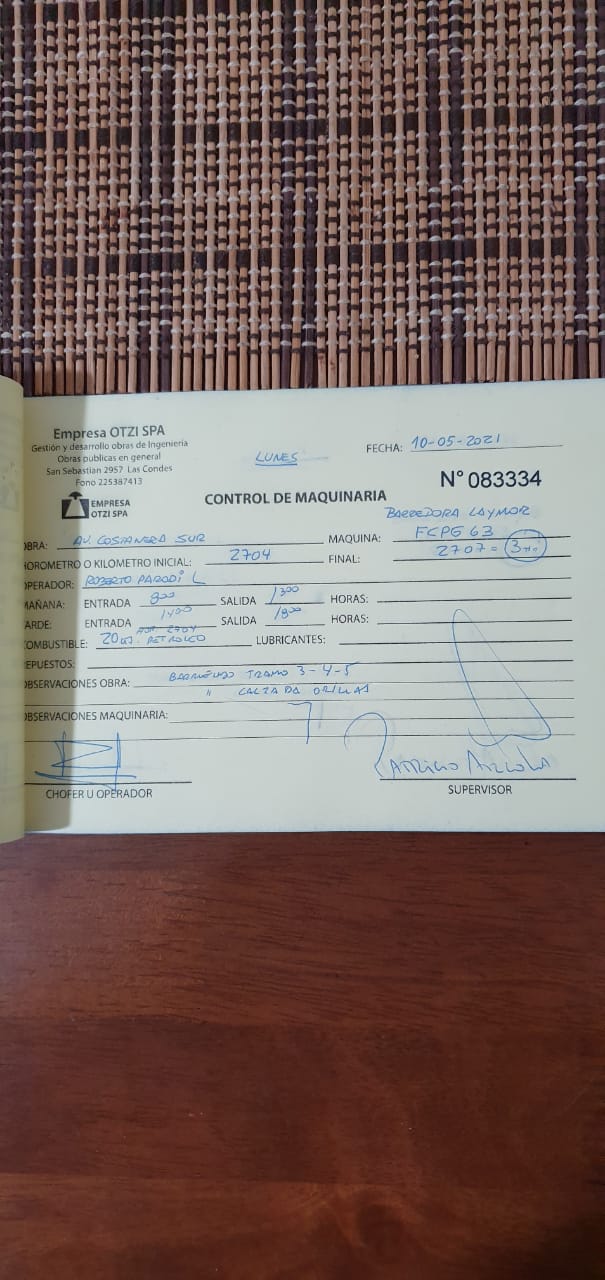 Empresa OTZI SPA
Gestión y desarrollo obras de Ingeniería
Obras publicas en general
San Sebastian 2957 Las Condes
Fono 225387413
EMPRESA
OTZI SPA
LUNES
FECHA: 10-05-2021
N° 083334
CONTROL DE MAQUINARIA
BARREDORA LAYMOR
OBRA: AV. COSTANERA SUR MAQUINA: FCPG 63
HOROMETRO O KILOMETRO INICIAL: 2704 FINAL: 2707 = 3
OPERADOR: ROBERTO PARODI L
MAÑANA: ENTRADA 800 SALIDA 1300 HORAS:
TARDE: ENTRADA 1400 SALIDA 1800 HORAS:
2704
COMBUSTIBLE: 20 PETROLEO LUBRICANTES:
REPUESTOS:
OBSERVACIONES OBRA: BARRIENDO TRAMO 3-4-5
" CALZADA ORILLAS
OBSERVACIONES MAQUINARIA:
PATRICIO
CHOFER U OPERADOR SUPERVISOR